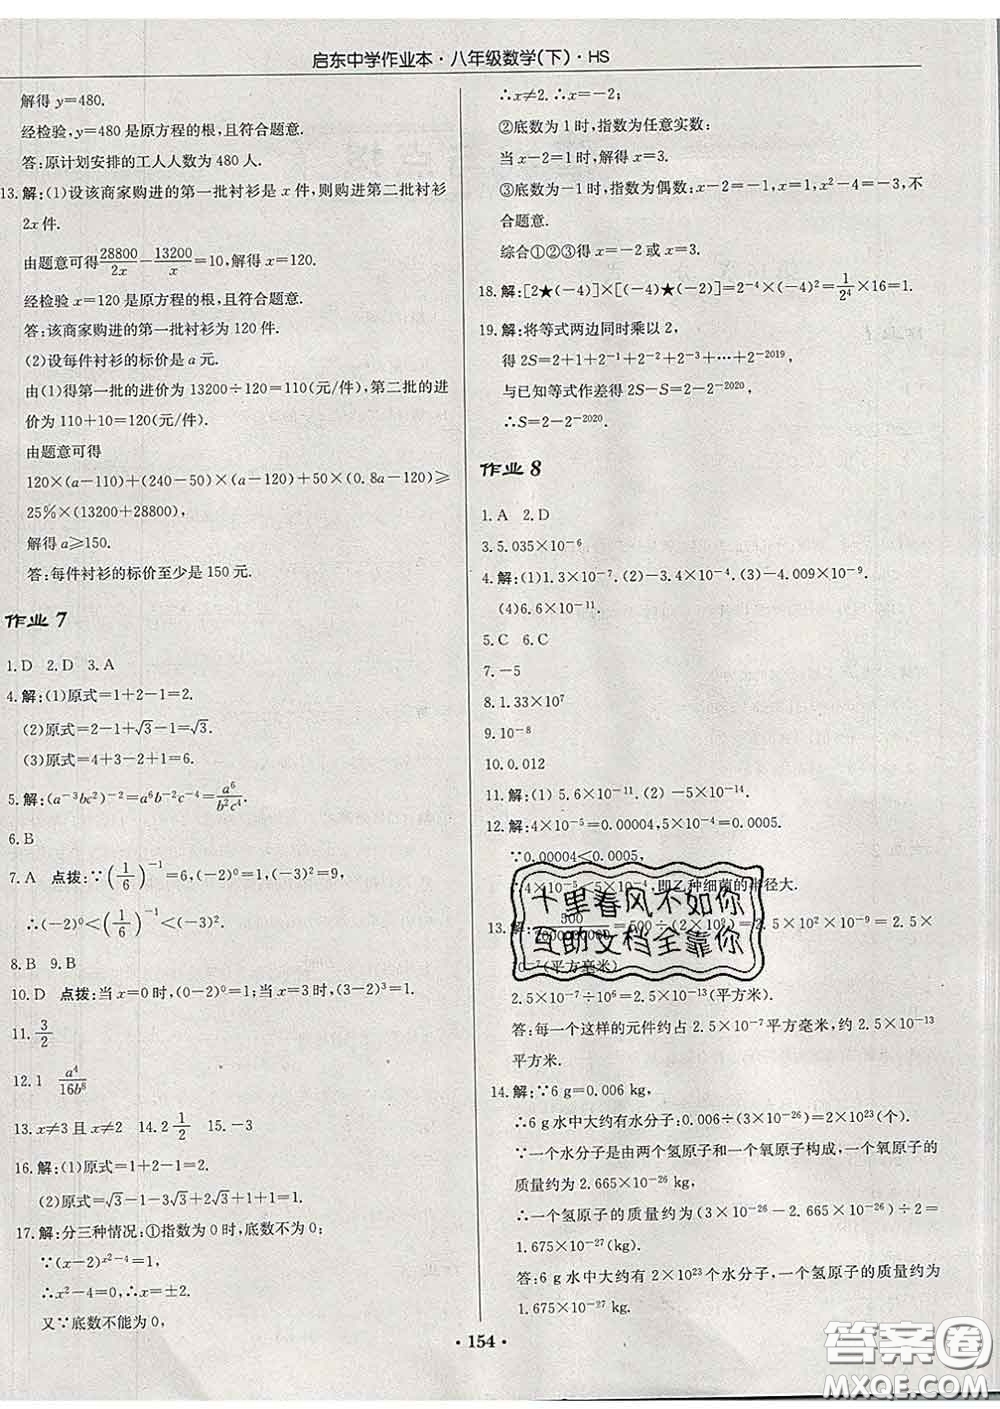 启东中学作业本·八年级数学(下)·HS
解得 y=480.
经检验,y=480 是原方程的根,且符合题意.
答:原计划安排的工人人数为 480 人.
13.解:(1)设该商家购进的第一批衬衫是 x 件,则购进第二批衬衫
2x 件.
由题意可得28800/2x−13200/x=10,解得 x=120.
经检验 x=120 是原方程的根,且符合题意.
答:该商家购进的第一批衬衫为 120 件.
(2)设每件衬衫的标价是 a 元.
由(1)得第一批的进价为 13200÷120=110(元/件),第二批的进
价为 110+10=120(元/件).
由题意可得
120×(a−110)+(240−50)×(a−120)+50×(0.8a−120)≥
25%×(13200+28800),
解得 a≥150.
答:每件衬衫的标价至少是 150 元.
作业 7
1.D 2.D 3.A
4.解:(1)原式=1+2−1=2.
(2)原式=2−1+√3−1=√3.
(3)原式=4+3−2+1=6.
5.解:(a⁻³bc²)⁻²=a⁶b⁻²c⁻⁴=a⁶/b²c⁴.
6.B
7.A 点拨:∵(1/6)⁻¹=6,(−2)⁰=1,(−3)²=9,
∴(−2)⁰<(1/6)⁻¹<(−3)².
8.B 9.B
10.D 点拨:当 x=0时,(0−2)⁰=1;当 x=3 时,(3−2)³=1.
11.3/2
12.1 a⁴/16b⁸
13.x≠3 且 x≠2 14.2 1/2 15.−3
16.解:(1)原式=1+2−1=2.
(2)原式=√3−1−3√3+2√3+1+1=1.
17.解:分三种情况:①指数为 0 时,底数不为 0;
∵(x−2)^(x²−4)=1,
∴x²−4=0,∴x=±2.
又∵底数不能为 0,
∴x≠2.∴x=−2;
②底数为 1 时,指数为任意实数:
当 x−2=1 时,解得 x=3.
③底数为−1 时,指数为偶数:x−2=−1,x=1,x²−4=−3,不
合题意.
综合①②③得 x=−2 或 x=3.
18.解:[2★(−4)]×[(−4)★(−2)]=2⁻⁴×(−4)²=1/2⁴×16=1.
19.解:将等式两边同时乘以 2,
得 2S=2+1+2⁻¹+2⁻²+2⁻³+…+2⁻²⁰¹⁹,
与已知等式作差得 2S−S=2−2⁻²⁰²⁰,
∴S=2−2⁻²⁰²⁰.
作业 8
1.A 2.D
3.5.035×10⁻⁶
4.解:(1)1.3×10⁻⁷.(2)−3.4×10⁻⁵.(3)−4.009×10⁻⁹.
(4)6.6×10⁻¹¹.
5.C 6.C
7.−5
8.1.33×10⁷
9.10⁻⁸
10.0.012
11.解:(1) 5.6×10⁻¹¹.(2) −5×10⁻¹⁴.
12.解:4×10⁻⁵=0.00004,5×10⁻⁴=0.0005.
∵0.00004<0.0005,
∴4×10⁻⁵<5×10⁻⁴,即乙种细菌的半径大.
13.解:500/2000000000=500÷(2×10⁹)=2.5×10²×10⁻⁹=2.5×
10⁻⁷(平方毫米)
2.5×10⁻⁷÷10⁶=2.5×10⁻¹³(平方米).
答:每一个这样的元件约占 2.5×10⁻⁷平方毫米,约 2.5×10⁻¹³
平方米.
14.解:∵6 g=0.006 kg,
∴6 g水中大约有水分子:0.006÷(3×10⁻²⁶)=2×10²³(个).
∵一个水分子是由两个氢原子和一个氧原子构成,一个氧原子的
质量约为 2.665×10⁻²⁶ kg,
∴一个氢原子的质量约为(3×10⁻²⁶−2.665×10⁻²⁶)÷2=
1.675×10⁻²⁷(kg).
答:6 g水中大约有 2×10²³个水分子,一个氢原子的质量约为
1.675×10⁻²⁷ kg.
十里春风不如你
互助文档全靠你
·154·
答案圈
MXQE.COM